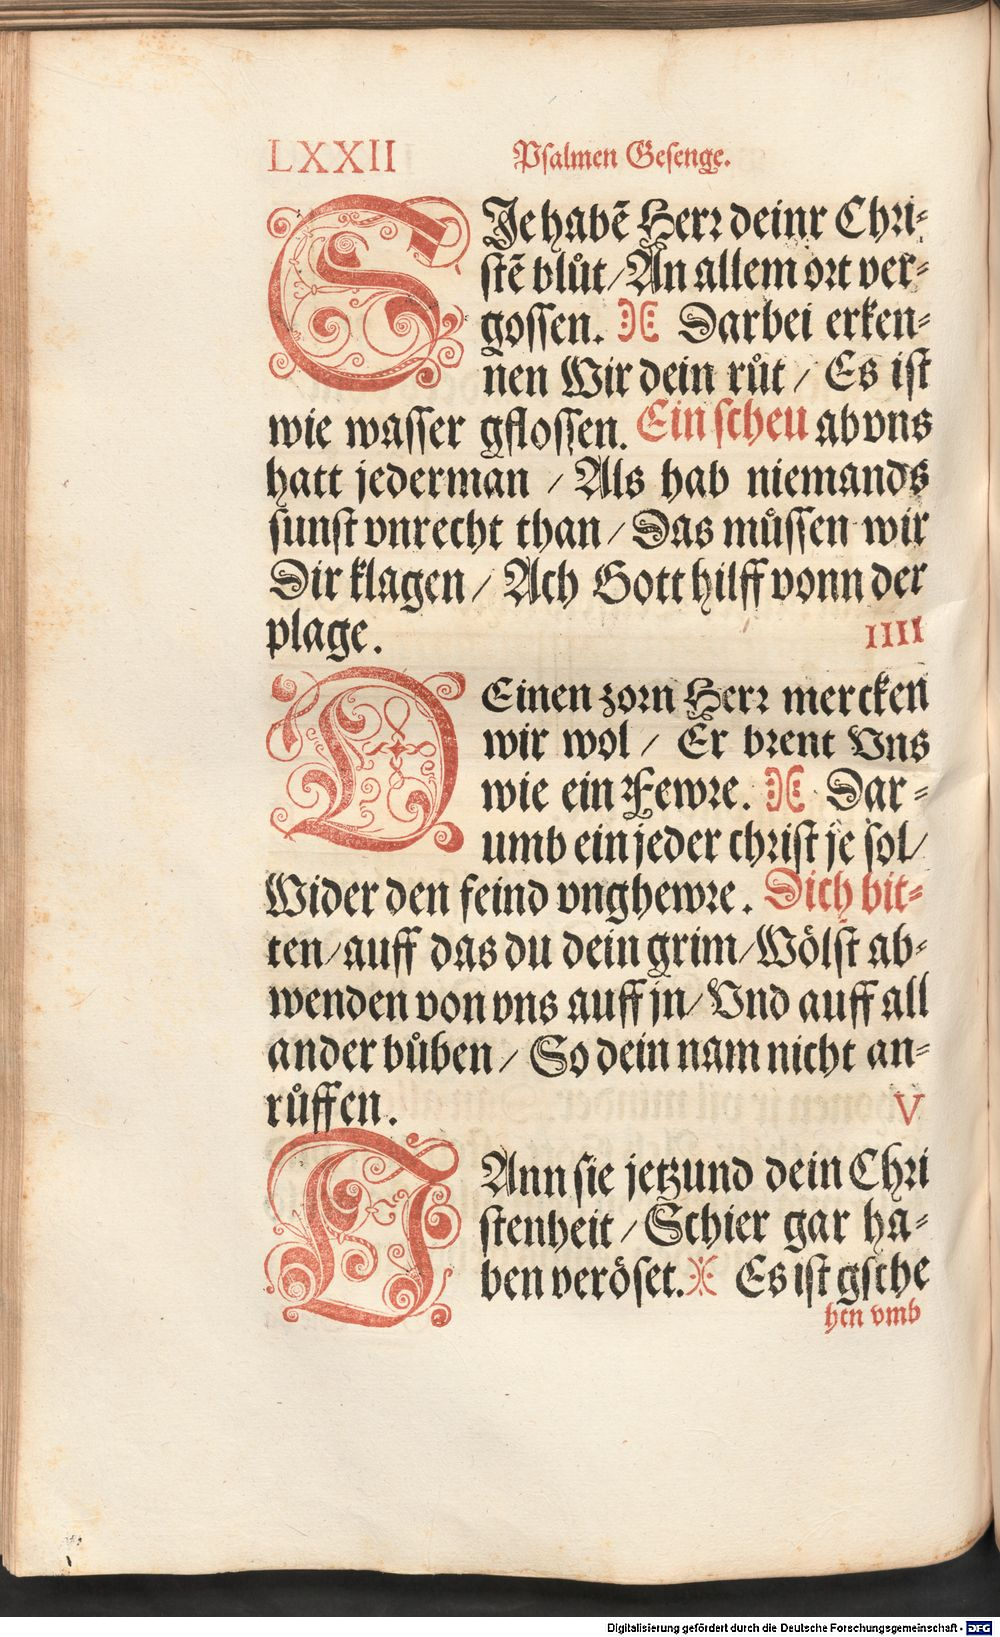 LXXII Psalmen Gesenge.
SJe habẽ Herr deinr Chri⸗
stẽ blůt/An allem ort ver⸗
gossen. Darbei erken⸗
nen Wir dein růt / Es ist
wie wasser gflossen. Ein scheu ab vns
hatt jederman / Als hab niemands
sunst vnrecht than / Das můssen wir
Dir klagen / Ach Gott hilff vonn der
plage. IIII
DEinen zorn Herr mercken
wir wol / Er brent Vns
wie ein Fewre. Dar⸗
umb ein jeder christ je sol/
Wider den feind vnghewre. Dich bit⸗
ten/auff das du dein grim/Wölst ab⸗
wenden von vns auff jn/ Vnd auff all
ander bůben / So dein nam nicht an⸗
růffen. V
Ann sie jetzund dein Chri
stenheit / Schier gar ha⸗
ben veröset. Es ist gsche
hen vmb
Digitalisierung gefördert durch die Deutsche Forschungsgemeinschaft - DFG